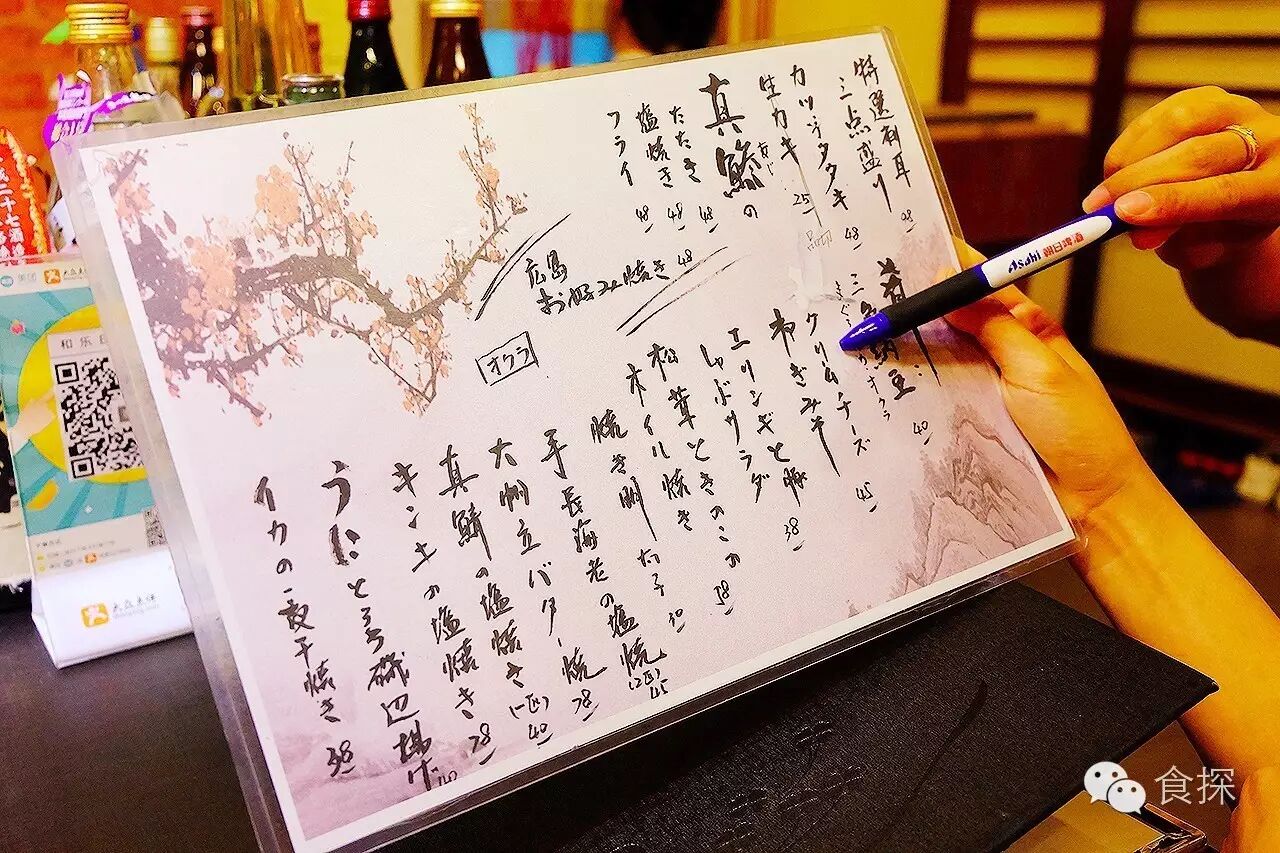 特選刺身
三点盛り 98
カツオタタキ 48
生カキ 25
品切
真鯵の
あじ
たたき 48
塩焼き 48
フライ 48
広島
お好み焼き 48
オクラ
三色納豆 40
クリームチーズ
わさびみそ 45
エリンギと豚
しゃぶサラダ 38
松茸ときのこの
ホイル焼き 58
焼き明太子
手長海老の塩焼
(2匹) 45
大帆立バター焼 78
真鯖の塩焼き
(一匹) 40
キンキの塩焼き 78
うにとろろ磯辺揚げ
イカの一夜干焼き 38
Asahi 朝日啤酒
美团
食探